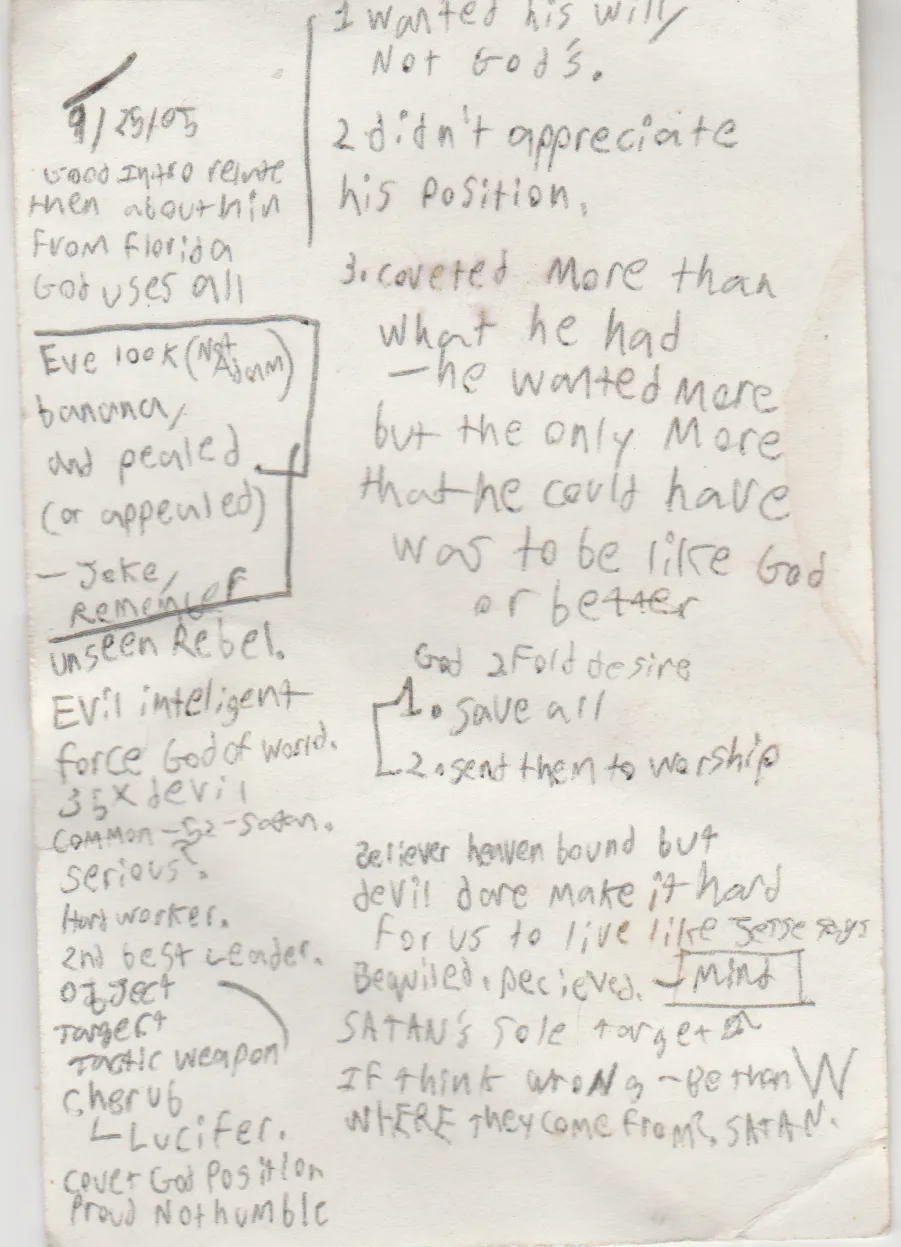 9/25/05
Good Intro relate
then about him
From Florida
God uses all
Eve look (Not Adam)
banana,
and pealed
(or appealed)
- Joke,
Remember
unseen Rebel.
Evil inteligent
force God of World.
35x devil
common -52- Satan.
serious.
Hard worker.
2nd best Leader.
Object
Target
Tactic weapon
Cherub
Lucifer.
covet God Position
Proud Not humble
1 wanted his will,
Not God's.
2 didn't appreciate
his position.
3. coveted More than
what he had
- he wanted More
but the only More
that he could have
was to be like God
or better
God 2 Fold desire
1. save all
2. sent them to worship
Believer heaven bound but
devil dare make it hard
For us to live like says
Beguiled. Decieved. - Mind
SATAN's Sole target
If think wroNg - Be than W
WHERE They come from? SATAN.